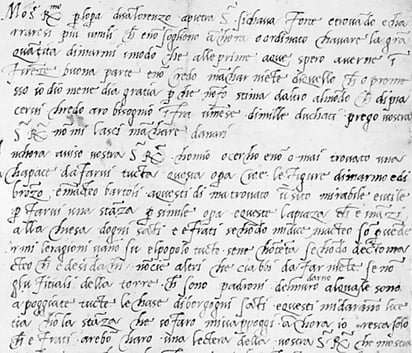 Mo͂s R.mo p lopa di sa͂lorenzo apietra Sa͂ sichava forte e trovando e cha
rraresi piu umili ch e no͂ sogliono a͂chora o ordinato chavare la gra͂
qua͂tita dimarmi i͂modo che alle prime aque spero averne i͂
fire͂ze buona parte e no͂ credo ma͂char nie͂te diquello ch o prome
sso idio mene dia gratia p che no͂ fo stima daltro almo͂do ch dipia
cervi chredo aro bisognio i͂fra u͂mese dimille duchati prego vostra
S. R. no mi lasci ma͂chare danari
a͂chora aviso vostra S. R. chomio o cercho e no͂ o mai trovato una
chapace dafarvi tucta questa opa cioe le figure dimarmo edi
bro͂zo e macteo bartoli aquesti di ma trovato u͂ sito mirabile e utile
p farvi una sta͂za p simile opa e queste lapiaza ch e ina͂zi
alla chiesa dogni sa͂ti e e frati sechodo midice macteo so͂ p ve͂de
rmi leragioni va͂no su elpopolo tucto sene cho͂te͂ta sechodo decto ma
cteo ch e desi͂dachi no͂ cie altri che ciabbi dafar nie͂te se no͂
gli uficiali della torre ch sono padroni delmuro darno alquale sono
apoggiate tucte le chase diborgogni sa͂ti e questi midara͂no lice͂
tia cholla sta͂za che fo fare mivapoggi a͂chora cio resta solo
ch e frati arebo͂ charo una lectera della vostra S. R. che mostra